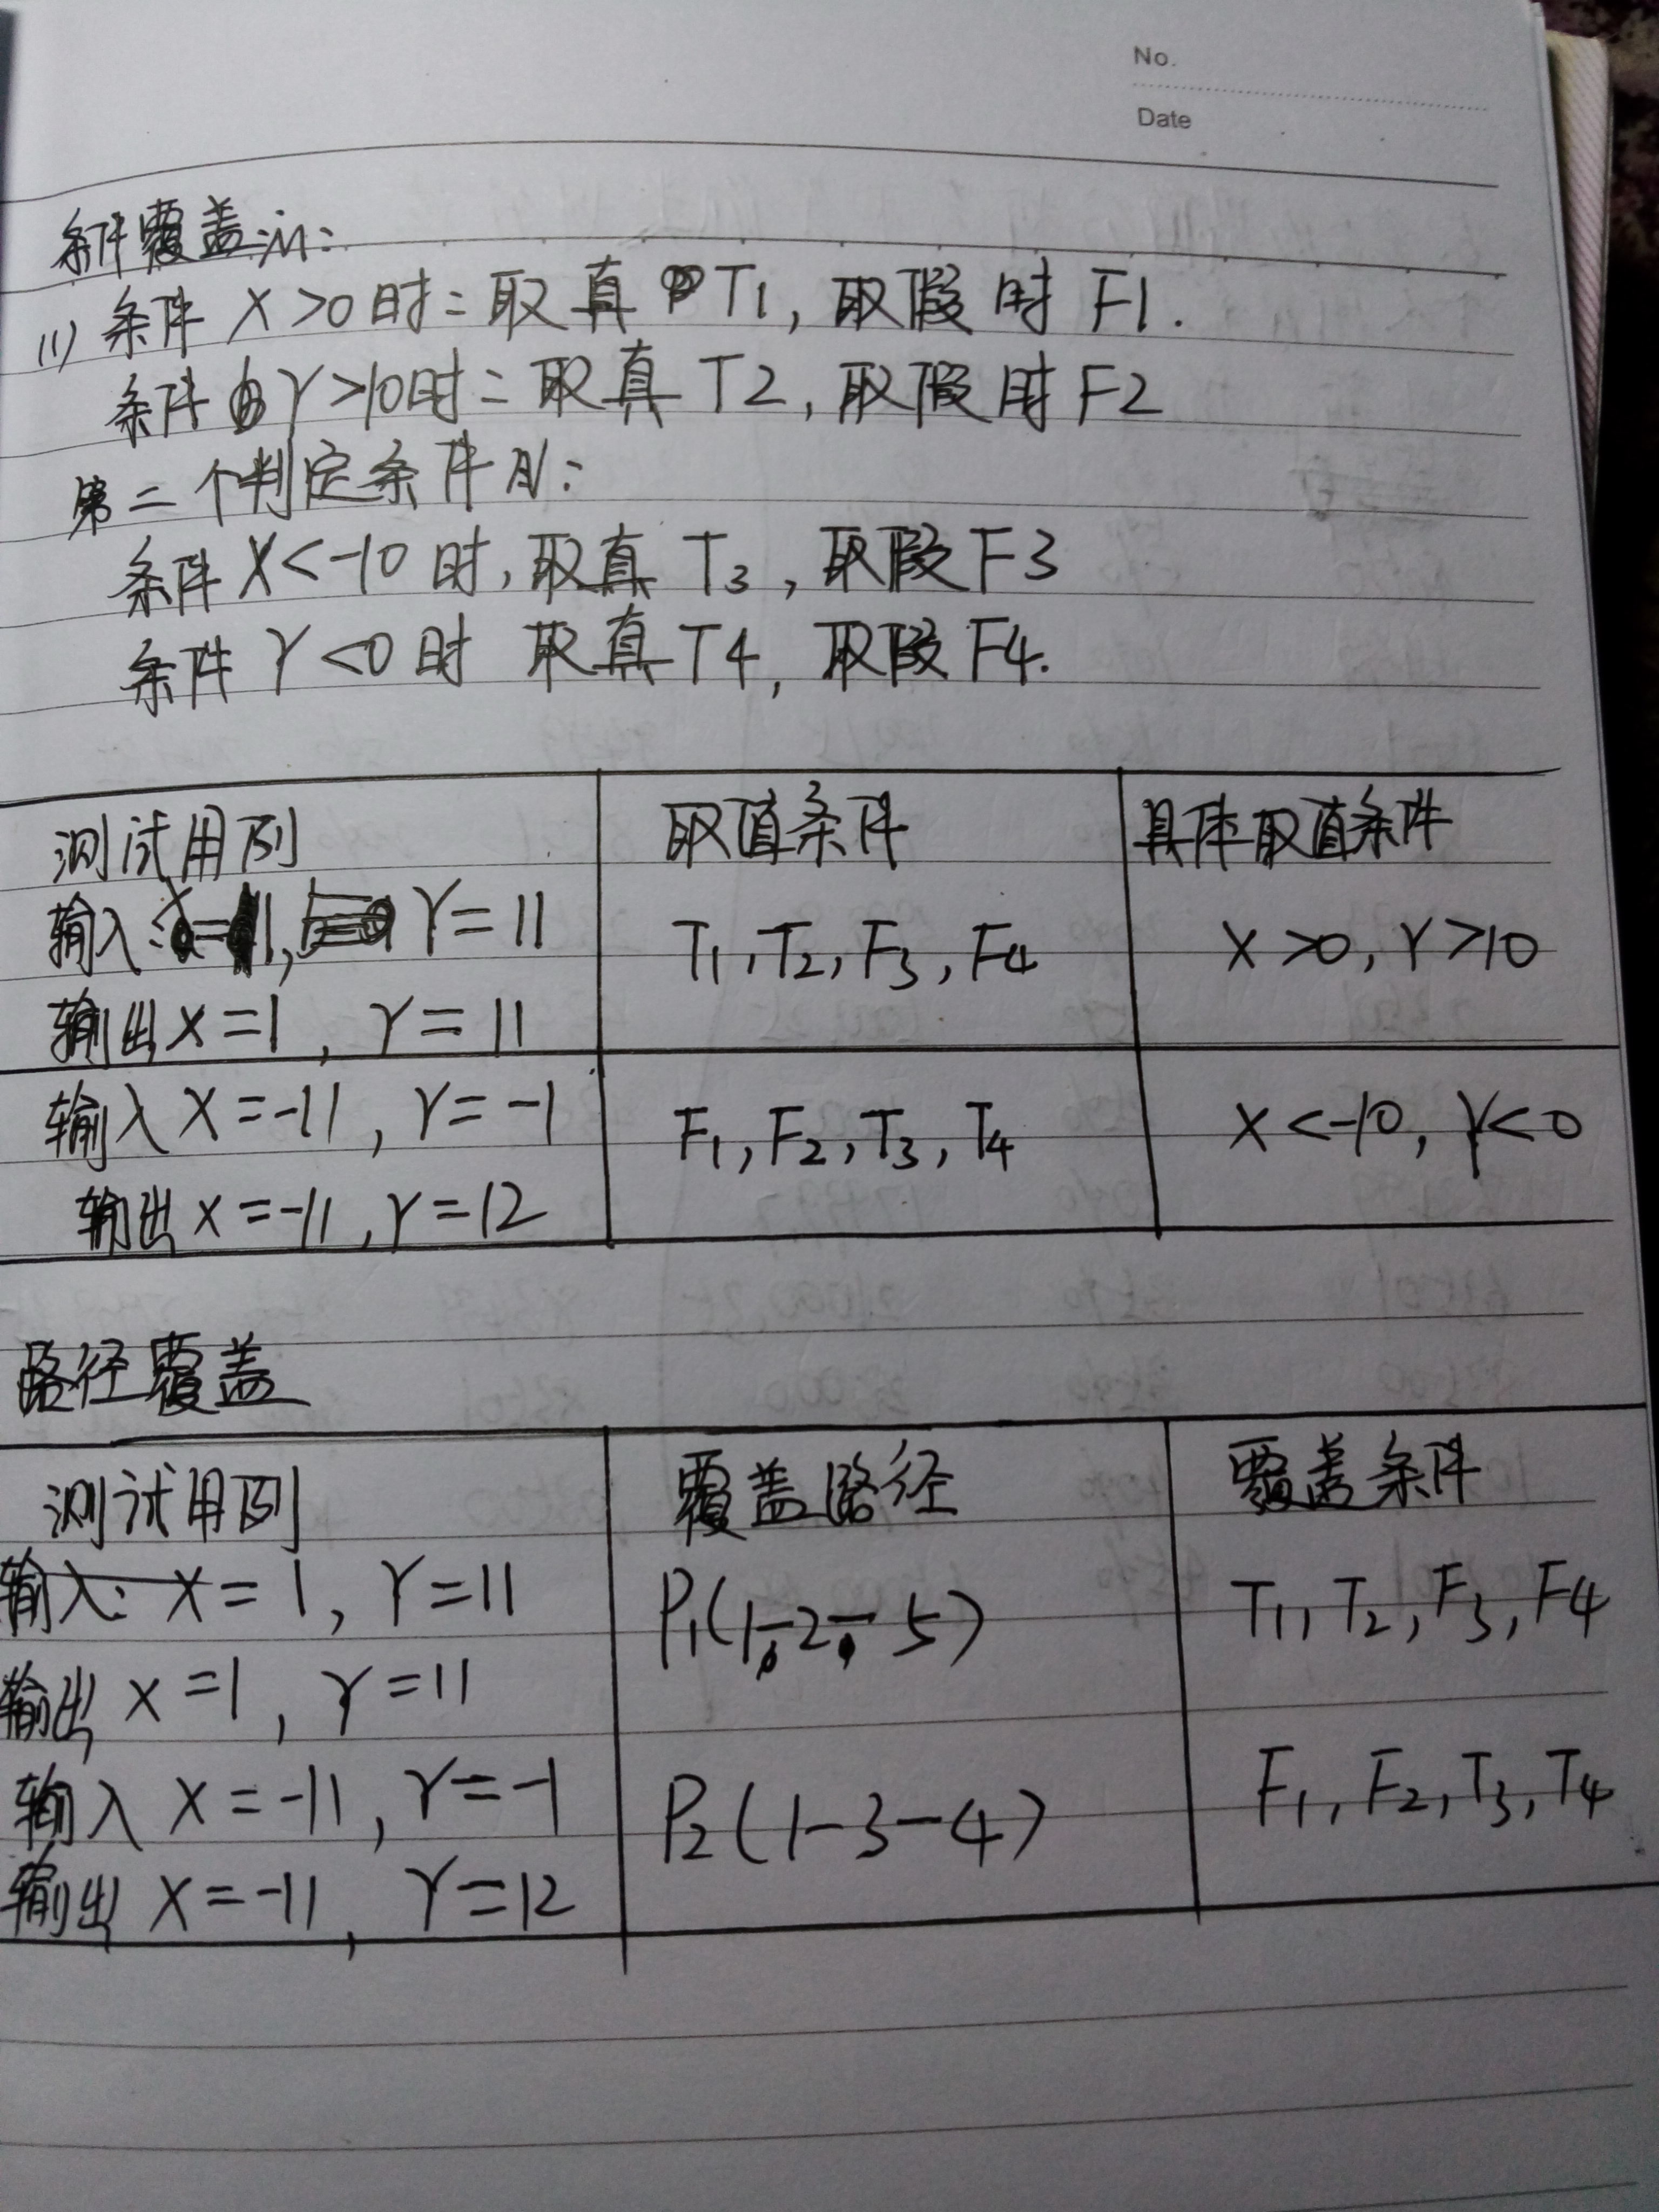 No.
Date
条件覆盖:
(1) 条件 X>0时:取真 T1,取假时 F1.
条件 Y>10时:取真 T2,取假时F2
第二个判定条件
条件X<-10时,取真 T3,取假F3
条件 Y<0时 取真T4,取假F4.
测试用例 取值条件 具体取值条件
输入:X=1, Y=11 T1,T2,F3,F4 X>0,Y>10
输出X=1,Y=11
输入X=-11,Y=-1 F1,F2,T3,T4 X<-10,Y<0
输出X=-11,Y=12
路径覆盖
测试用例 覆盖路径 覆盖条件
输入:X=1,Y=11 P1(1-2-5) T1,T2,F3,F4
输出X=1,Y=11
输入X=-11,Y=-1 P2(1-3-4) F1,F2,T3,T4
输出X=-11,Y=12